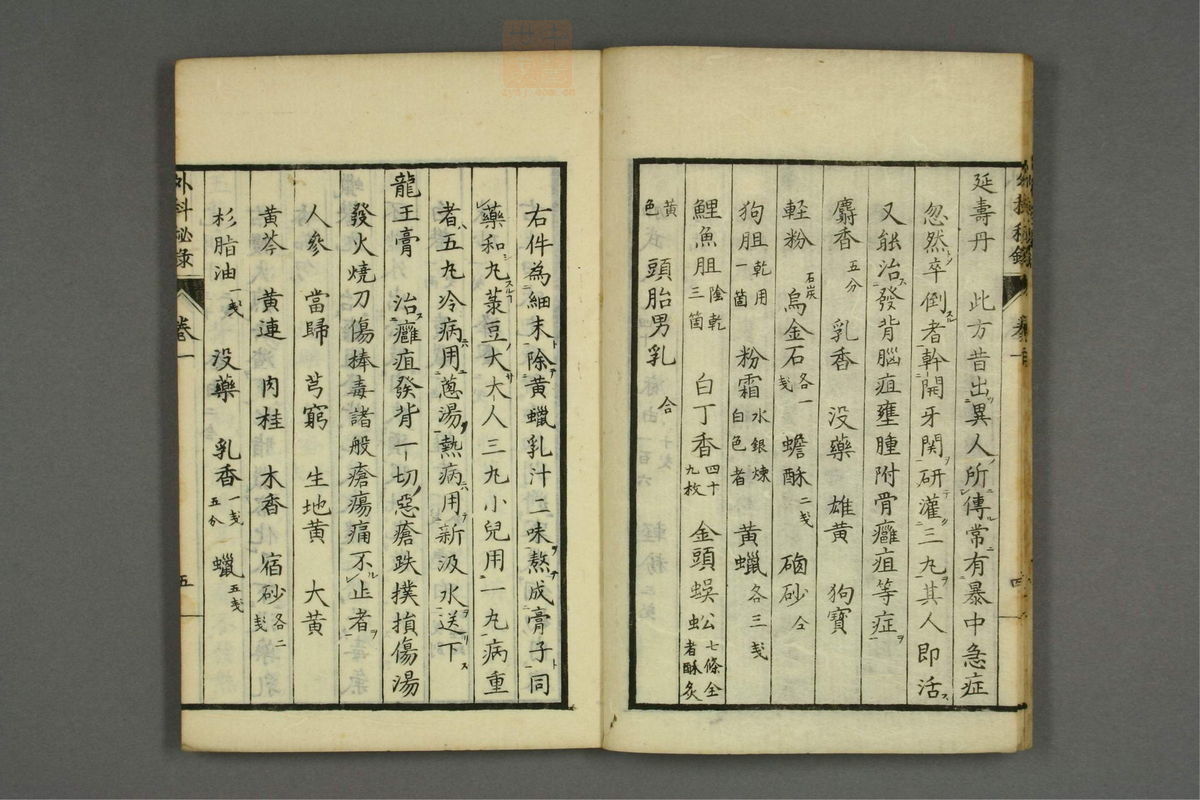 延壽丹　此方昔出異人所傳常有暴中急症
忽然卒倒者幹開牙関研灌三九其人即活
又能治發背腦疽壅腫附骨癰疽等症
麝香五分　乳香　没藥　雄黄　狗寶
輊粉　烏金石石炭各一戔　蟾酥二戔　硇砂仝
狗胆乾用一箇　粉霜水銀煉白色者　黄蠟各三戔
鯉魚胆陰乾三箇　白丁香四十九枚　金頭蜈蚣七條全者酥炙
黄色　頭胎男乳　合
右件為細末除黄蠟乳汁二味熬成膏子同
藥和丸菉豆大大人三丸小兒用一丸病重
者五丸冷病用蔥湯熱病用新汲水送下
龍王膏　治癰疽發背一切惡瘡跌撲損傷湯
發火燒刀傷捧毒諸般瘡瘍痛不止者
人參　當歸　芎窮　生地黄　大黄
黄芩　黄連　肉桂　木香　宿砂各二戔
杉脂油一戔　没藥　乳香一戔五分　蠟五戔
外科秘录　卷一　五